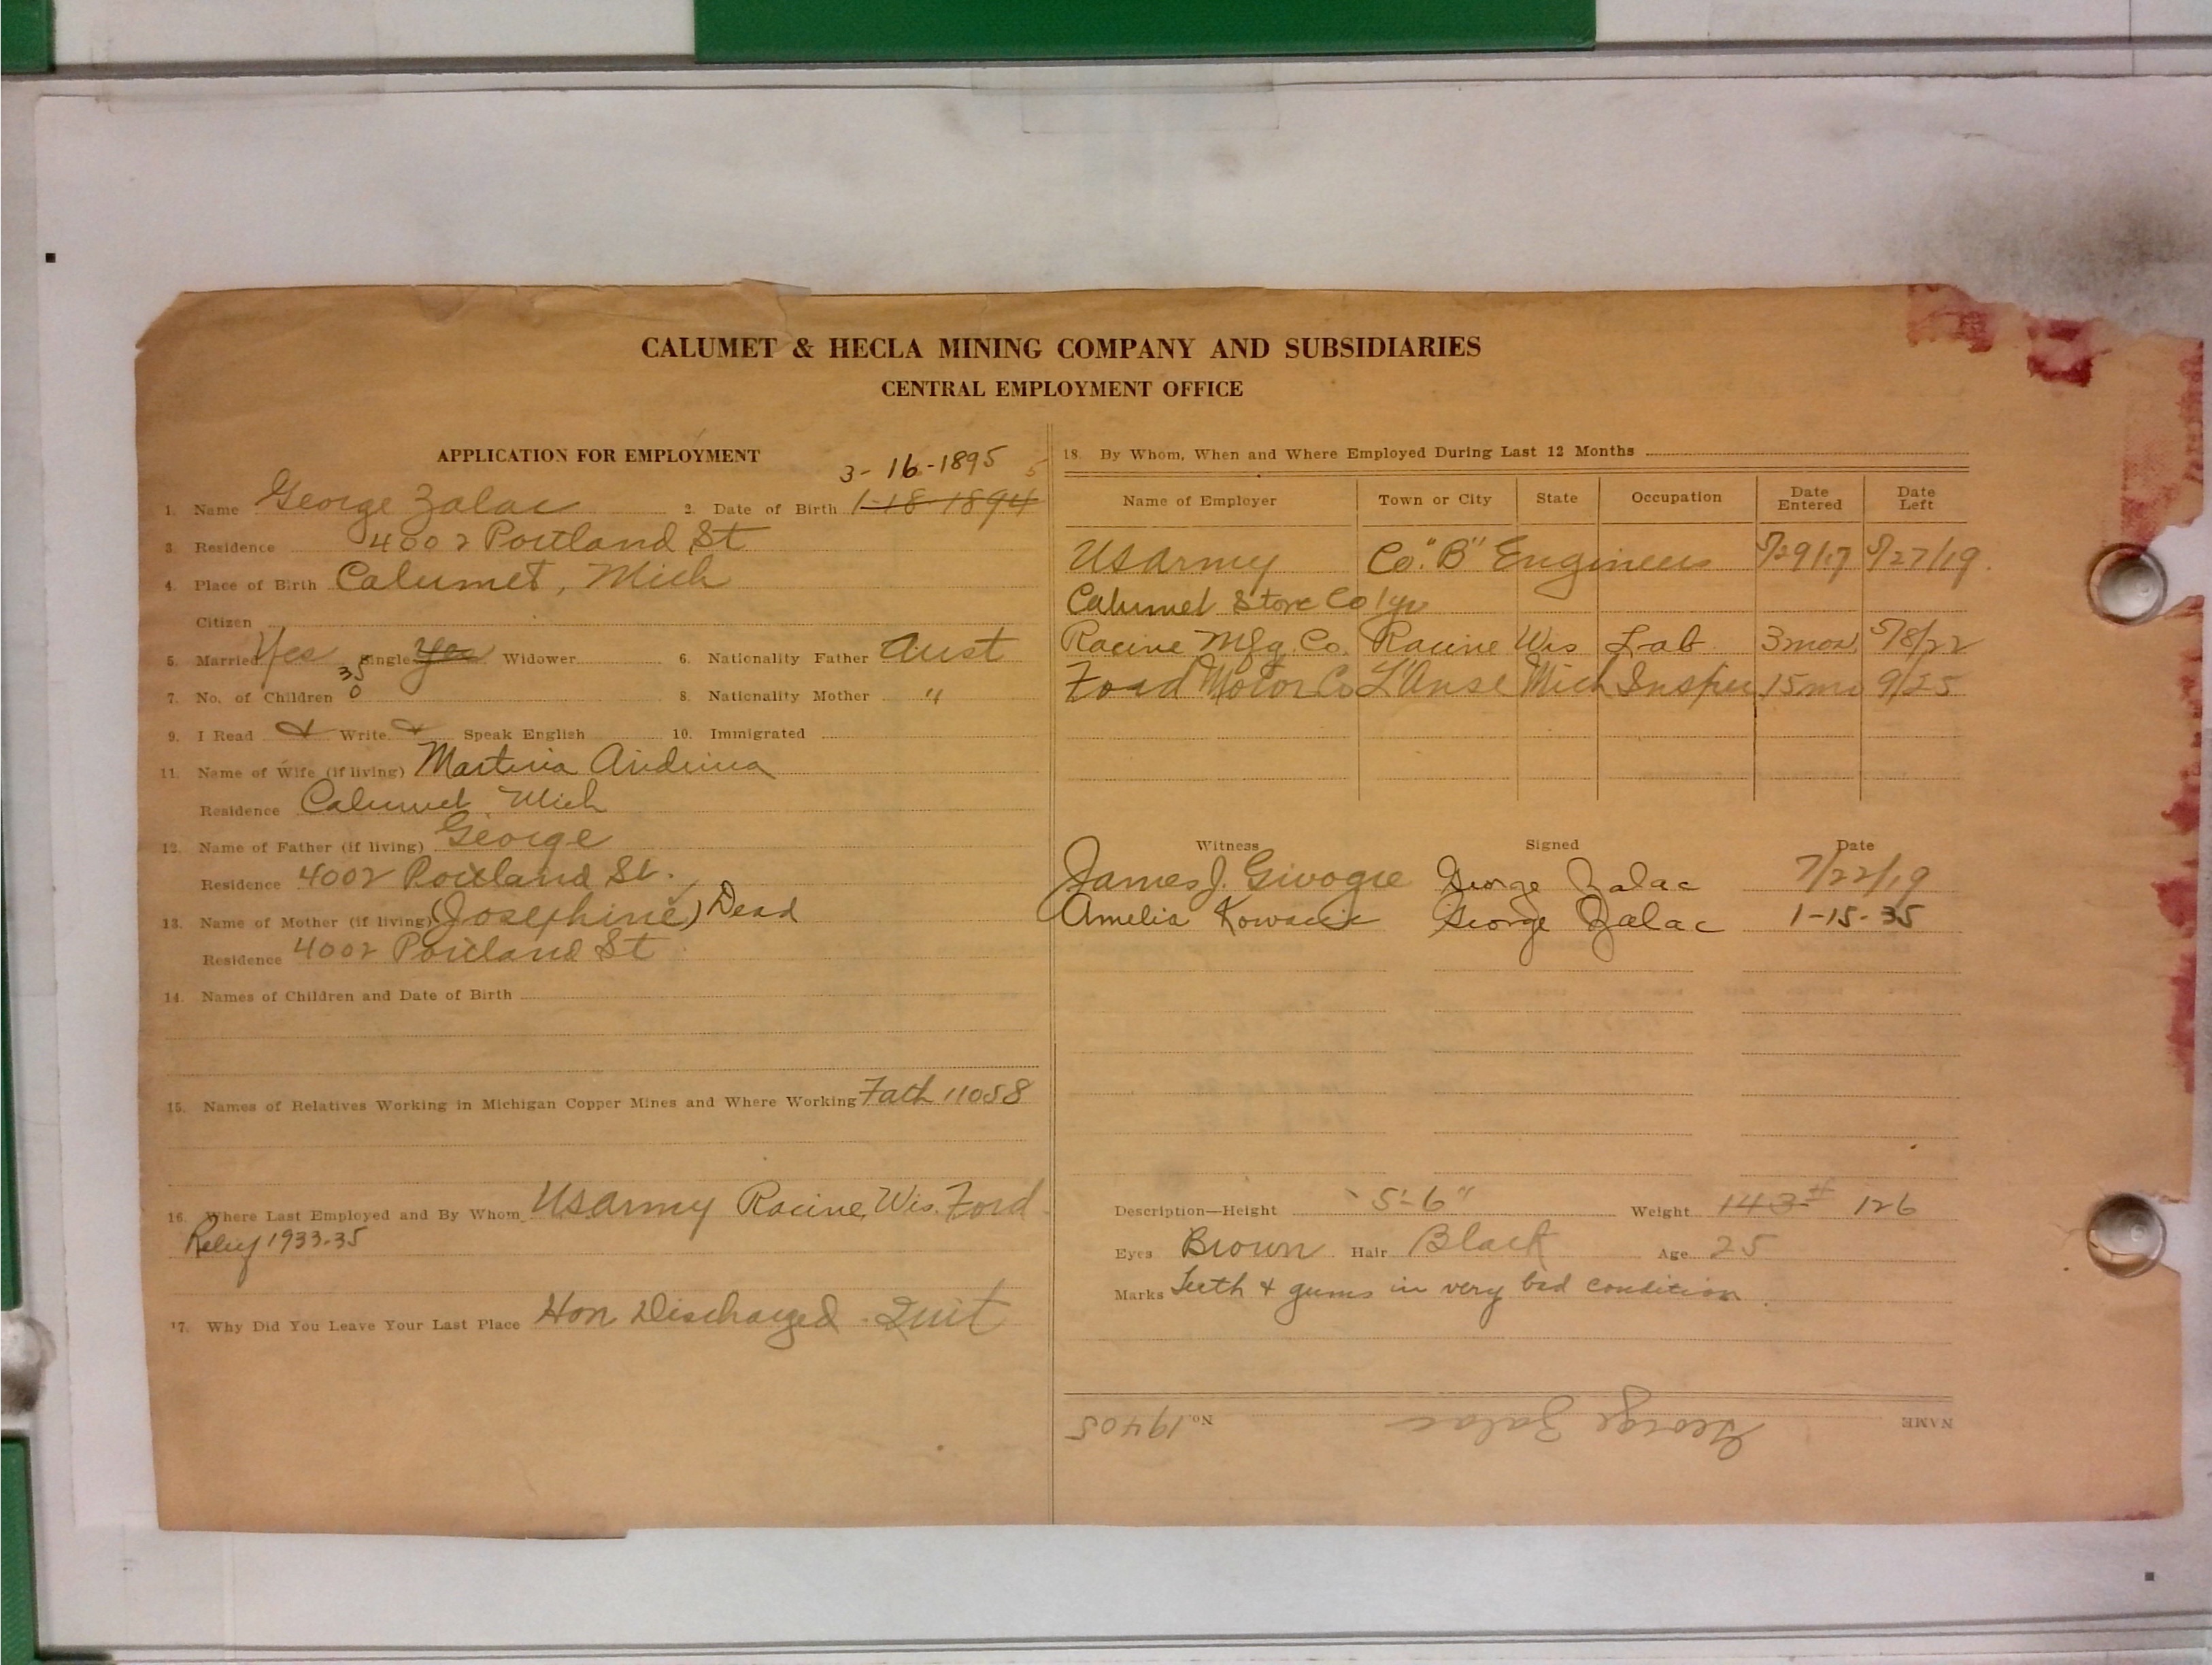 CALUMET & HECLA MINING COMPANY AND SUBSIDIARIES
CENTRAL EMPLOYMENT OFFICE
APPLICATION FOR EMPLOYMENT
3-16-1895 5
1. Name George Zalac 2. Date of Birth 1-18-1894
3. Residence 4002 Portland St
4. Place of Birth Calumet, Mich
Citizen
5. Married Yes Single Yes Widower 6. Nationality Father Aust
35
7. No. of Children 0 8. Nationality Mother "
9. I Read Write Speak English 10. Immigrated
11. Name of Wife (if living) Martina
Residence Calumet Mich
12. Name of Father (if living) George
Residence 4002 Portland St.
13. Name of Mother (if living) (Josephine) Dead
Residence 4002 Portland St
14. Names of Children and Date of Birth
15. Names of Relatives Working in Michigan Copper Mines and Where Working Fath 11058
16. Where Last Employed and By Whom US Army Racine, Wis. Ford
Relief 1933-35
17. Why Did You Leave Your Last Place Hon Discharged - Quit
18. By Whom, When and Where Employed During Last 12 Months
Name of Employer Town or City State Occupation Date Entered Date Left
US Army Co. "B" Engineers 5/29/17 5/27/19.
Calumet Store Co 1 yr
Racine Mfg. Co. Racine Wis Lab 3 mos 5/8/22
Ford Motor Co L'Anse Mich Inspec 15 mo 9/25
Witness Signed Date
James J. George Zalac 7/22/19
Amelia George Zalac 1-15-35
Description—Height 5'-6" Weight 143# 126
Eyes Brown Hair Black Age 25
Marks Teeth & gums in very bad condition.
NAME George Zalac No. 19405